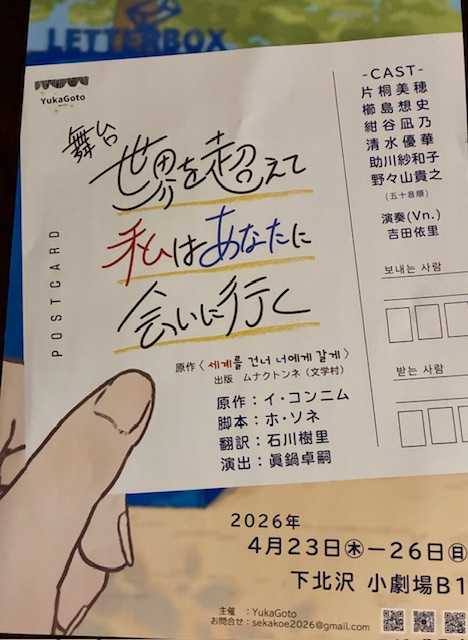 LETTERBOX
YukaGoto
舞台
世界を超えて
私はあなたに
会いに行く
POSTCARD
原作〈 세계를 건너 너에게 갈게 〉
出版　ムナクトンネ（文学村）
原作：イ・コンニム
脚本：ホ・ソネ
翻訳：石川樹里
演出：眞鍋卓嗣
-CAST-
片桐美穂
櫛島想史
紺谷凪乃
清水優華
助川紗和子
野々山貴之
（五十音順）
演奏(Vn.)
吉田依里
보내는 사람
받는 사람
2026年
4月23日㊍ー26日㊐
下北沢 小劇場B1
主催 : YukaGoto
お問合せ : sekakoe2026@gmail.com